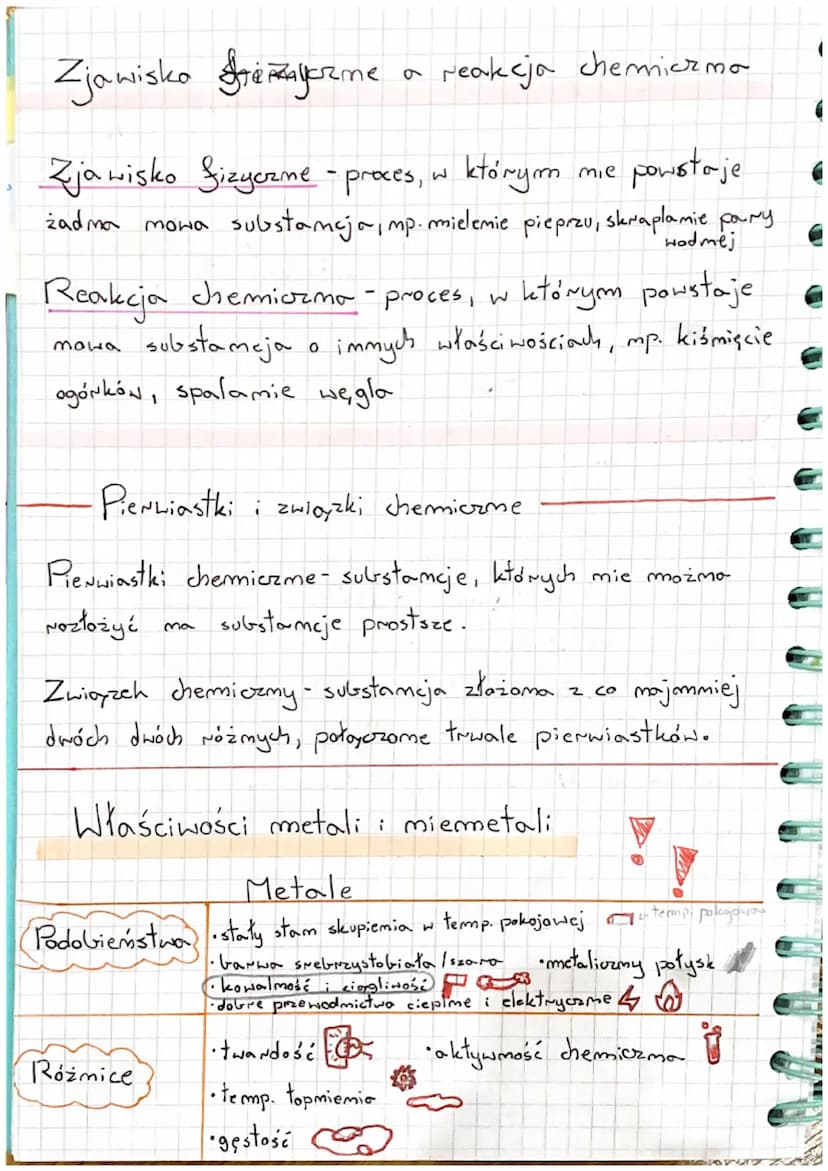 Zjawisko fizyczne a reakcja chemiczna
Zjawisko fizyczne - proces, w którym nie powstaje
żadna nowa substancja, np. mielenie pieprzu, skraplanie pary
wodnej
Reakcja chemiczna - proces, w którym powstaje
nowa substancja o innych właściwościach, np. kiśnięcie
ogórków, spalanie węgla
Pierwiastki i związki chemiczne
Pierwiastki chemiczne - substancje, których nie można
rozłożyć na substancje prostsze.
Związek chemiczny - substancja złożona z co najmniej
dwóch dwóch różnych, połączone trwale pierwiastków.
Właściwości metali i niemetali
!!
Metale
Podobieństwa
• stały stan skupienia w temp. pokojowej
temp. pokojowa
• barwa srebrzystobiała / szara • metaliczny połysk
• kowalność i ciągliwość
• dobre przewodnictwo cieplne i elektryczne
Różnice
• twardość • aktywność chemiczna
• temp. topnienia
• gęstość